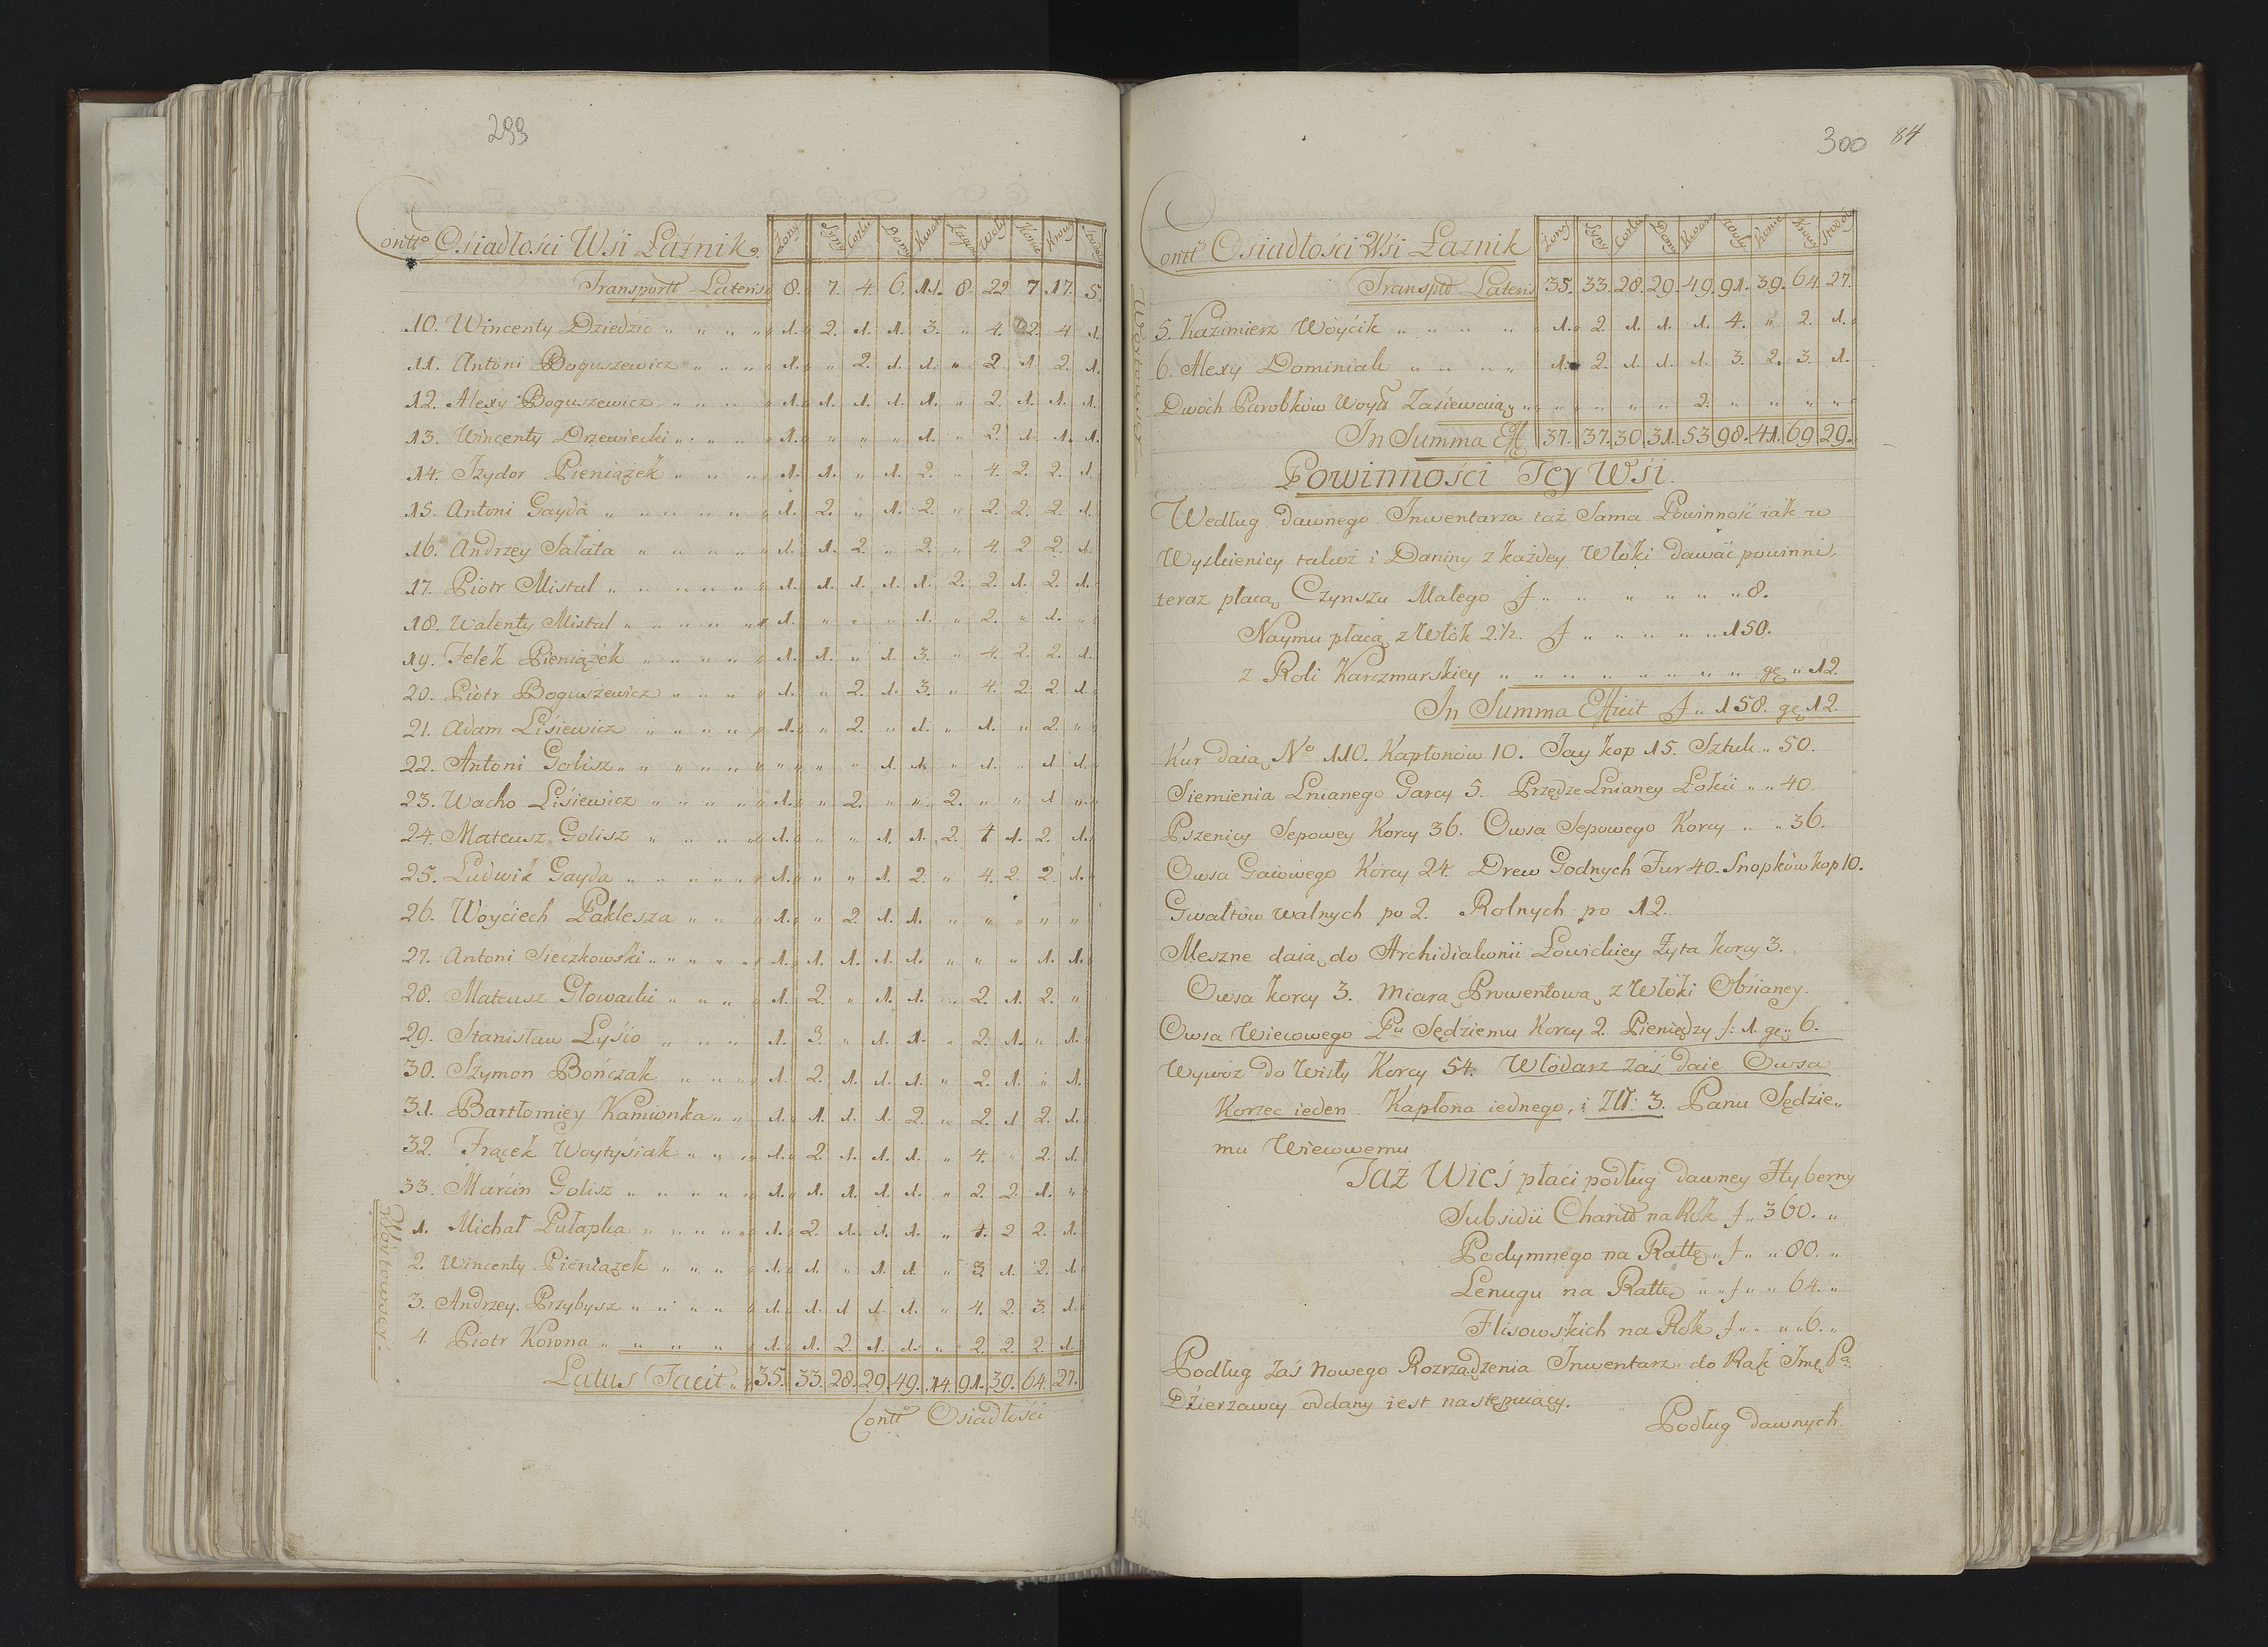 299
Contto Osiadłości Wśi Łaźnik.
Żony Syny Corki Domy Kwar Zago Woły Konie Krowy
Transportt Lateris 8. 7. 4. 6. 11. 8. 22 7 17. 5.
10. Wincenty Dziedzic " " " " 1. 2. 1. 1. 3. " 4. 2. 4 1.
11. Antoni Boguszewicz " " " 1. " 2. 1. 1. " 2. 1. 2. 1.
12. Alexy Boguszewicz " " " " 1. 1. 1. 1. 1. " 2. 1. 1. 1.
13. Wincenty Drzewiecki " " " " 1. " " " 1. " 2. 1. 1. 1.
14. Jzydor Pieniążek " " " 1. 1. " 1. 2. " 4. 2. 2. 1.
15. Antoni Gayda " " " " " 1. 2. " 1. 2. " 2. 2. 2. 1.
16. Andrzey Sałata " " " " " 1. 1. 2. " 2. " 4. 2 2. 1.
17. Piotr Mistal " " " " " " 1. 1. 1. 1. 1. 2. 2. 1. 2. 1.
18. Walenty Mistal " " " " " 1. " " " 1. " 2. " 1. "
19. Felek Pieniążek " " " " " 1. 1. " 1. 3. " 4. 2. 2. 1.
20. Piotr Boguszewicz " " " " 1. " 2. 1. 3. " 4. 2. 2. 1.
21. Adam Liśiewicz " " " " " 1. " 2. " 1. " 1. " 2. "
22. Antoni Golisz " " " " " " " " " 1. 1. " 1. " 1 1.
23. Wacho Liśiewicz " " " " " 1. " 2. " " 2. " " 1 "
24. Mateusz Golisz " " " " 1. " " 1. 1. 2. 4 1. 2. 1.
25. Ludwik Gayda " " " " " 1. " " 1. 2. " 4. 2. 2. 1.
26. Woyćiech Paklesza " " " 1. " 2. 1. 1. " " " " "
27. Antoni Sieczkowski " " " " " 1. 1. 1. 1. 1. " " " 1. 1.
28. Mateusz Głowacki " " " " 1. 2. " 1. 1. " 2. 1. 2. "
29. Stanisław Łyśio " " " 1. 3. " 1. 1. " 2. 1. " 1.
30. Szymon Bończak " " " 1. 2. 1. 1. 1. " 2. 1. " 1.
31. Bartłomiey Kamionka " " 1. 1. 1. 1. 2. " 2. 1 2. 1.
32. Frącek Woytyśiak " " " 1. 2. 1. 1. 1. " 4. " 2. 1.
33. Marćin Golisz " " " " " 1. 1. 1. 1. 1. " 2. 2. 1. "
Woytowscy.
1. Michał Pułapka " " " " " 1. 2. 1. 1. 1. " 4. 2 2. 1.
2. Wincenty Pieniążek " " " " 1. 1. " 1. 1. " 3. 1. 2. 1.
3. Andrzey. Przybysz " " " " " 1. 1. 1 1. 1. " 4. 2. 3. 1.
4 Piotr Korona " " " " " 1. 1. 2. 1. 1. " 2. 2. 2. 1.
Latus Facit " 35. 33. 28. 29. 49. 14. 91. 39. 64. 27.
Contto Osiadłości
300 84
Contto Osiadłości Wśi Łaznik
Żony Syny Corki Domy Kwar Woły Konie Krowy
Transpto Lateris 35. 33. 28. 29. 49. 91. 39. 64. 27.
Woytowscy
5. Kazimierz Woyćik " " " " " 1. 2. 1. 1. 1. 4. " 2. 1.
6. Alexy Dominiak " " " " 1. 2. 1. 1. 1. 3. 2. 3. 1.
Dwóch Parobków Zasiewaią " " " " " " 2. " " " "
In Summa Eff 37. 37. 30. 31. 53 98. 41. 69. 29.
Powinności Tey Wśi.
Według dawnego Inwentarza taż Sama Powinność iak w
Wyskienicy takoż i Daniny z każdey Włóki dawać powinni,
teraz płacą Czynszu Małego f " " " " " " 8.
Naymu płacą z Włók 2 1/2. f " " " " " 150.
z Roli Karczmarskiey " " " " " " " " " gę " 12
In Summa Efficit f " 158. gę 12.
Kur daią No 110. Kapłonów 10. Jay kop 15. Sztuk " 50.
Siemienia Lnianego Garcy 5. Przędze Lnianey Łokci " " 40.
Pszenicy Sepowey Korcy 36. Owsa Sepowego Korcy " " 36.
Owsa Gaiowego Korcy 24. Drew Godnych Fur 40. Snopków kop 10.
Gwałtów walnych po 2. Rolnych po 12.
Meszne daią do Archidiakonii Łowickiey Żyta korcy 3.
Owsa korcy 3. Miarą Prowentową z Włóki Obśianey.
Owsa Wiecowego Pu Sędziemu Korcy 2. Pieniędzy f: 1. gę " 6.
Wywoz do Wisły Korcy 54. Włodarz zaś daie Owsa
Korzec ieden. Kapłona iednego, i Zł: 3. Panu Sędzie"
mu Wiecowemu
Taż Wieś płaci podług dawney Hyberny
Subsidii Charitto na Rok f " 360. "
Podymnego na Rattę " f " " 80. "
Lenugu na Rattę " " f " " 64. "
Flisowskich na Rok f " " " 6. "
Podług zaś Nowego Rozrządzenia Inwentarz do Rąk Jmę Pa
Dźierzawcy oddany iest następuiący.
Podług dawnych